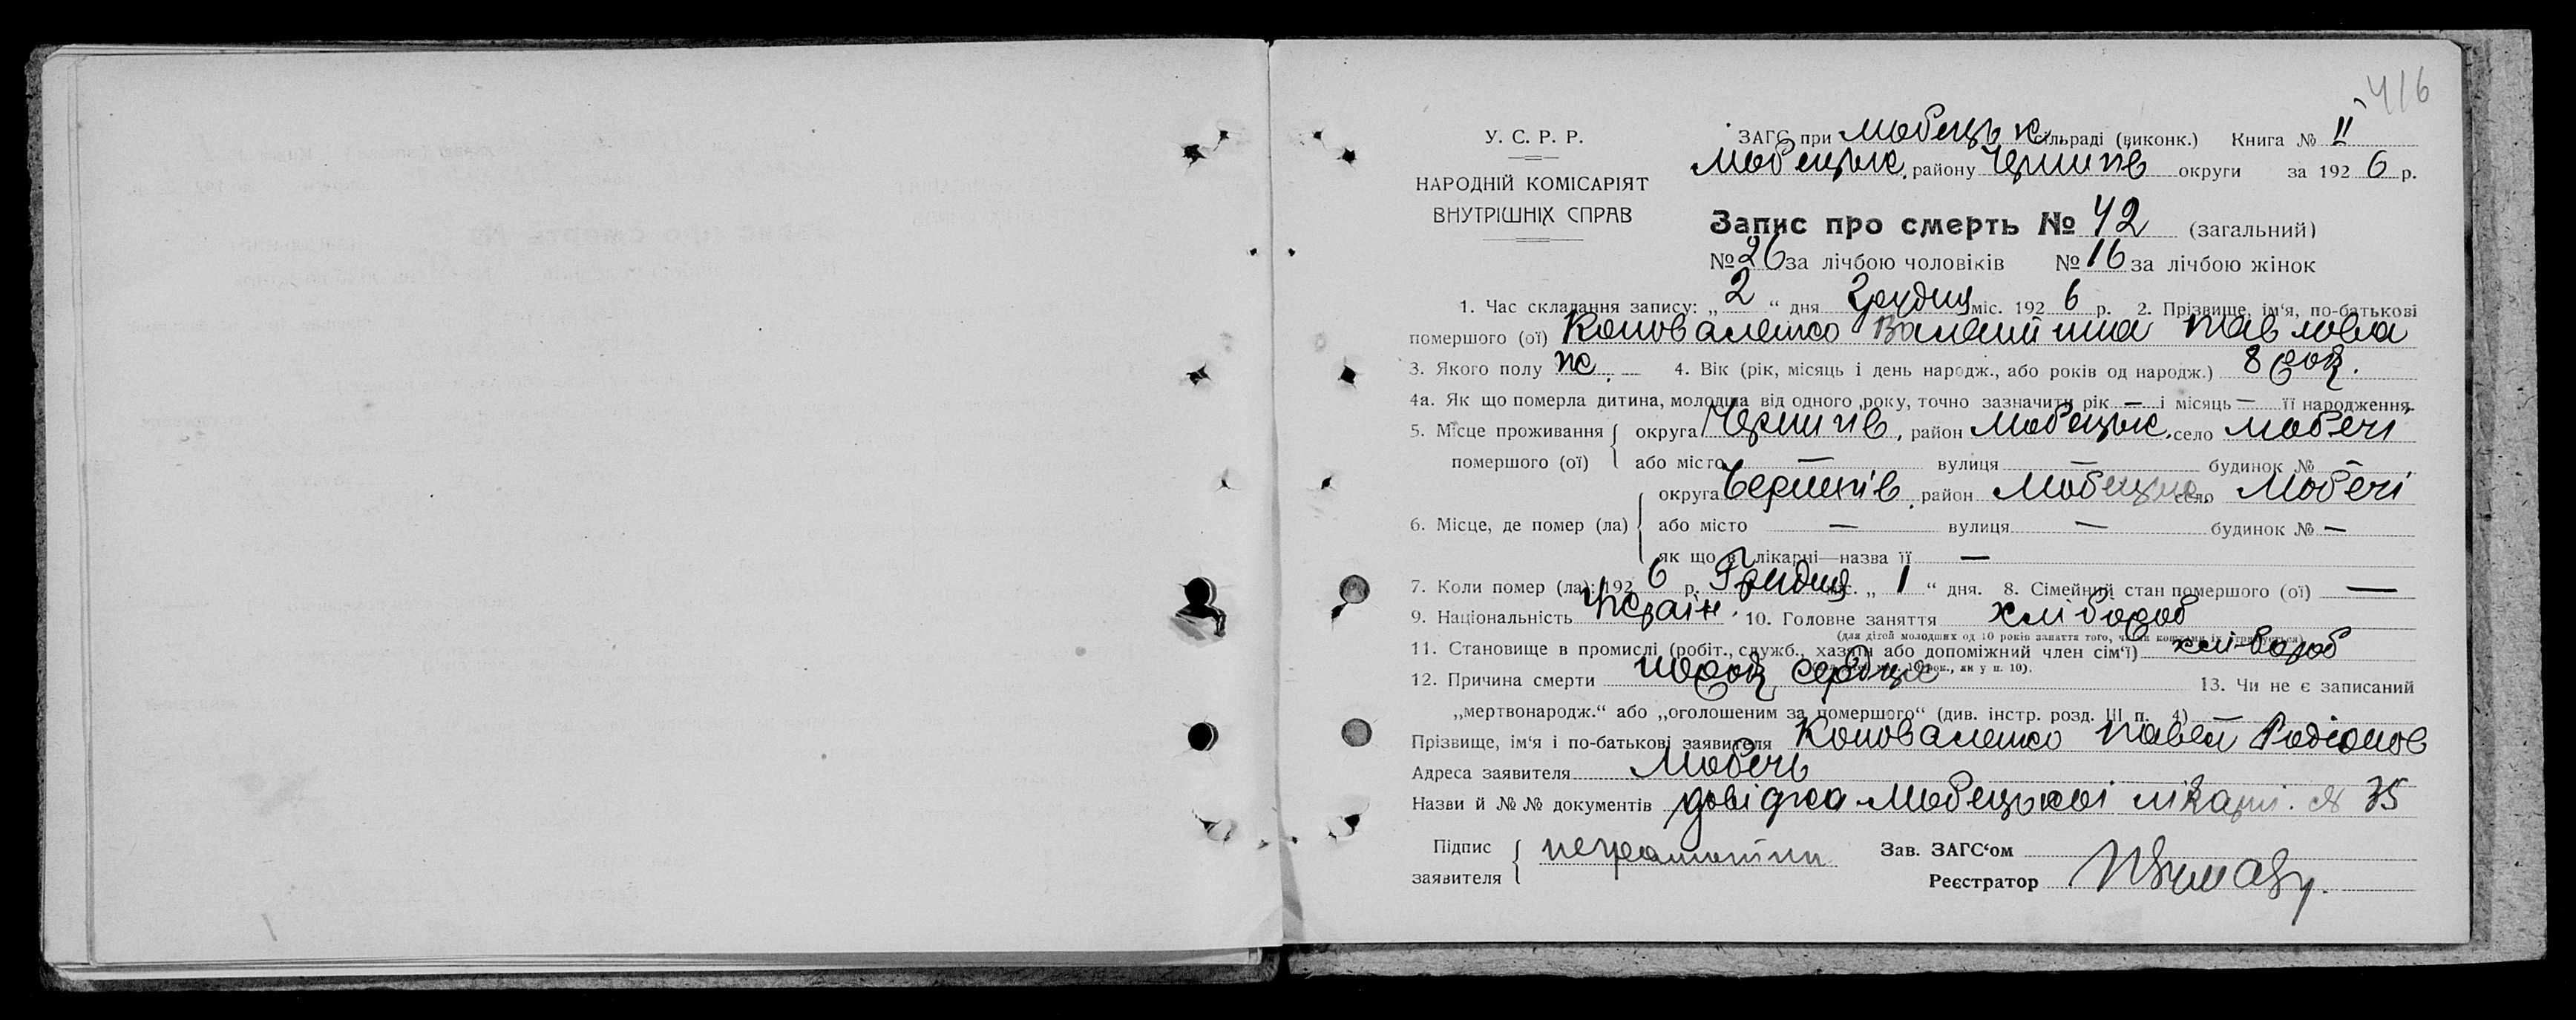 416
У. С. Р. Р.
НАРОДНІЙ КОМІСАРІЯТ
ВНУТРІШНІХ СПРАВ
ЗАГС при Любецьк сільраді (виконк.) Книга № II
Любецьк. району Черниг̓в округи за 1926 р.
Запис про смерть № 42 (загальний)
№ 26 за лічбою чоловіків № 16 за лічбою жінок
1. Час складання запису: „ 2 “ дня Грудня міс. 1926 р. 2. Прізвище, ім‘я, по-батькові
помершого (ої) Коноваленко Валентина Павловна
3. Якого полу ж. 4. Вік (рік, місяць і день народж., або років од народж.) 8 год.
4а. Як що померла дитина, молодша від одного року, точно зазначити рік — і місяць — її народження.
5. Місце проживання помершого (ої) { округа Чернигів, район Любецьк. село Любечі
або місто — вулиця — будинок № —
6. Місце, де помер (ла) { округа Чернигів, район Любецьк. село Любечі
або місто — вулиця — будинок № —
як що в лікарні—назва її —
7. Коли помер (ла): 1926 р. Грудня міс. „ 1 “ дня. 8. Сімейний стан помершого (ої) —
9. Національність Україн. 10. Головне заняття хлібороб
(для дітей молодших од 10 років заняття того, чиїми коштами їх утримується)
11. Становище в промислі (робіт., служб., хазяїн або допоміжний член сім‘ї) хлібороб
рок., як у п. 10).
12. Причина смерти порок сердце 13. Чи не є записаний
„мертвонародж.“ або „оголошеним за помершого“ (див. інстр. розд. III п. 4) —
Прізвище, ім‘я і по-батькові заявителя Коноваленко Павел Родіонов
Адреса заявителя Любечь
Назви й №№ документів довідка Любецької лікарні. № 35
Підпис заявителя { неграмотний
Зав. ЗАГС‘ом
Реєстратор